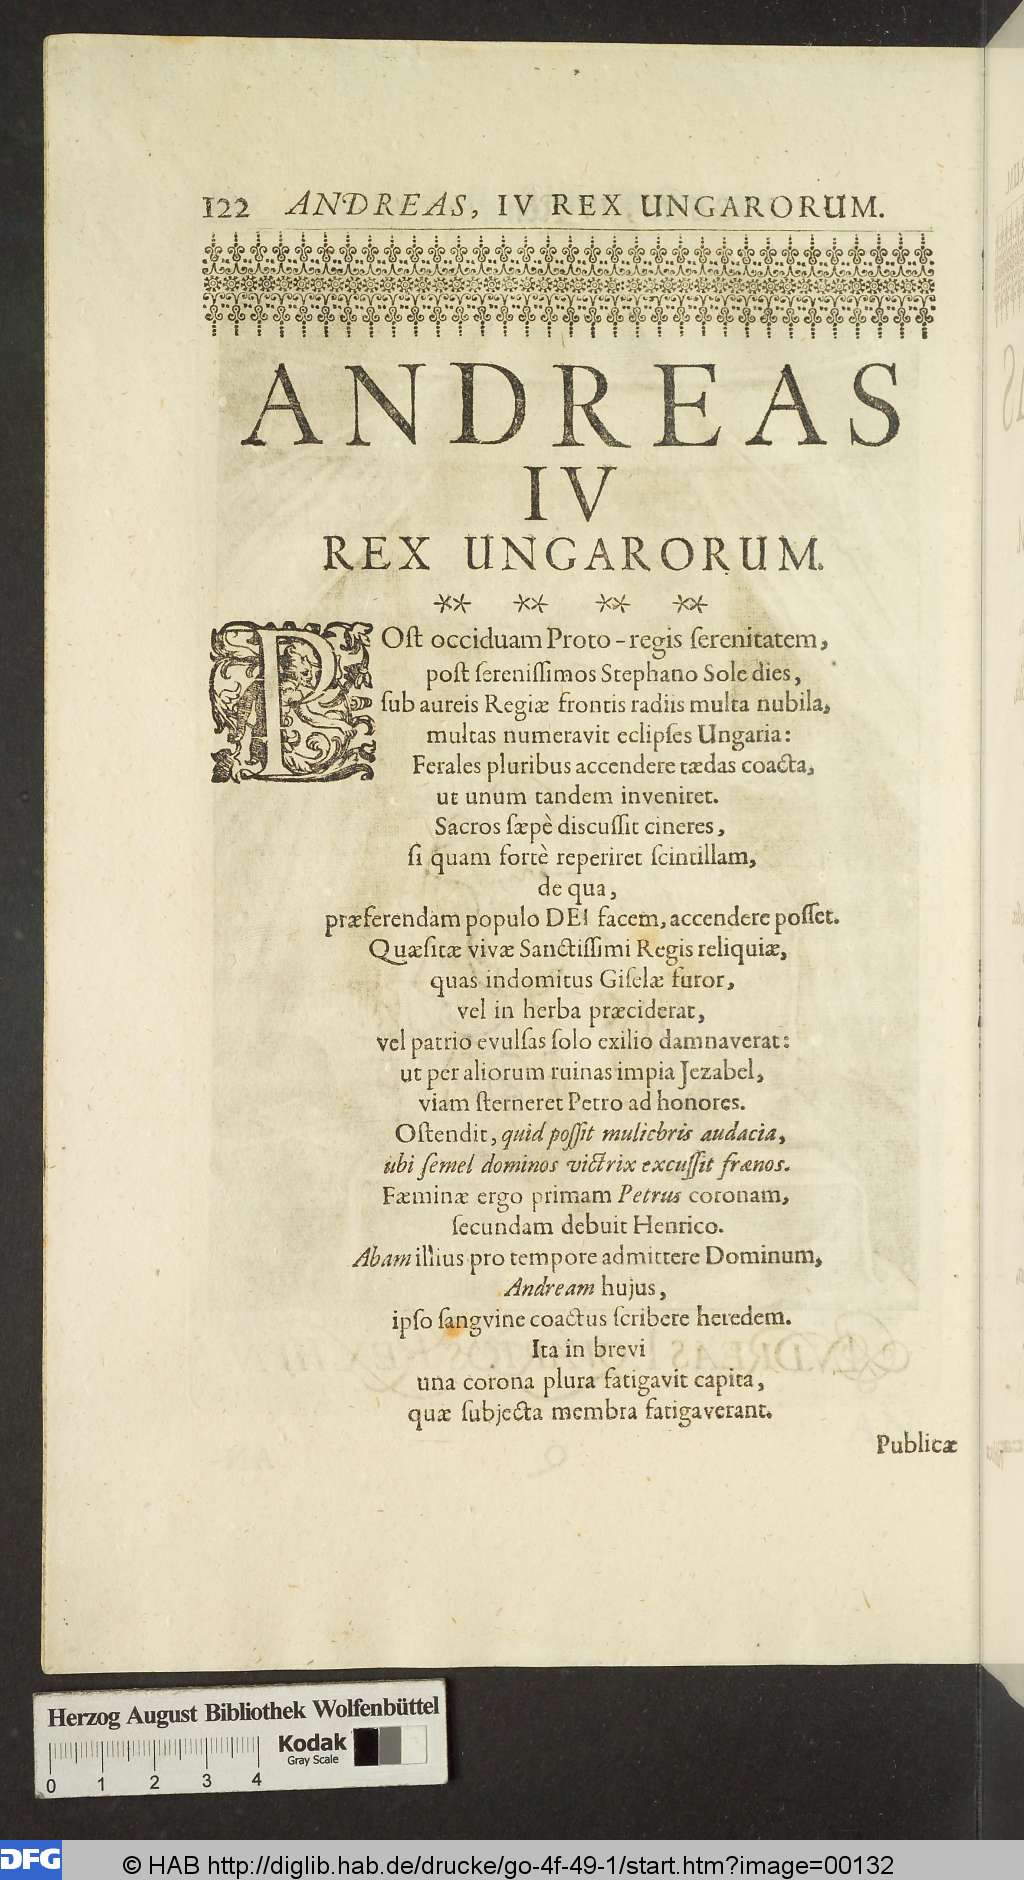 122 ANDREAS, IV REX UNGARORUM.
ANDREAS
IV
REX UNGARORUM.
** ** ** **
POſt occiduam Proto-regis ſerenitatem,
poſt ſereniſſimos Stephano Sole dies,
ſub aureis Regiæ frontis radiis multa nubila,
multas numeravit eclipſes Ungaria:
Ferales pluribus accendere tædas coacta,
ut unum tandem inveniret.
Sacros ſæpè discuſſit cineres,
ſi quam fortè reperiret ſcintillam,
de qua,
præferendam populo DEI facem, accendere poſſet.
Quæſitæ vivæ Sanctiſſimi Regis reliquiæ,
quas indomitus Giſelæ furor,
vel in herba præciderat,
vel patrio evulſas ſolo exilio damnaverat:
ut per aliorum ruinas impia Jezabel,
viam ſterneret Petro ad honores.
Oſtendit, quid poſſit muliebris audacia,
ubi ſemel dominos victrix excuſſit frænos.
Fæminæ ergo primam Petrus coronam,
ſecundam debuit Henrico.
Abam illius pro tempore admittere Dominum,
Andream hujus,
ipſo ſangvine coactus ſcribere heredem.
Ita in brevi
una corona plura fatigavit capita,
quæ ſubjecta membra fatigaverant.
Publicæ
Herzog August Bibliothek Wolfenbüttel
Kodak
Gray Scale
0 1 2 3 4
DFG © HAB http://diglib.hab.de/drucke/go-4f-49-1/start.htm?image=00132